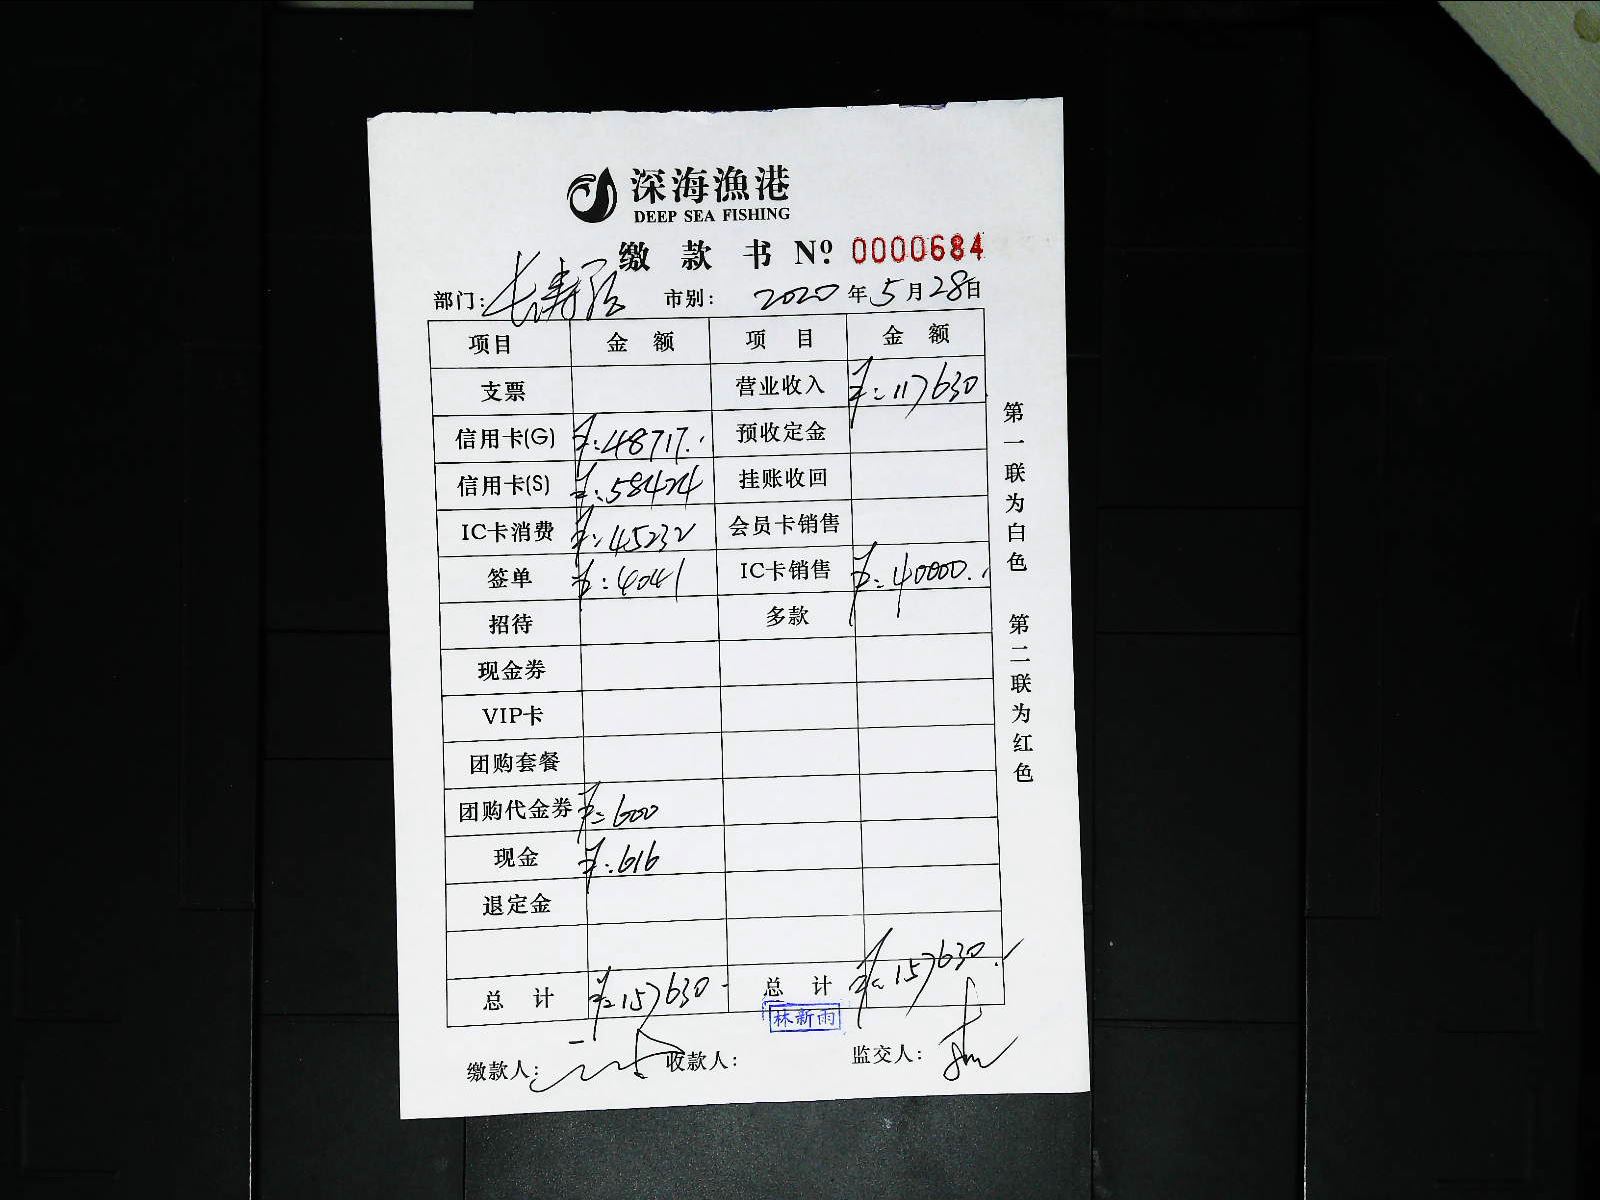 深海漁港
DEEP SEA FISHING
缴款书 Nº 0000684
部门: 长寿路 市别: 2020年5月28日
项目 金额 项目 金额
支票 营业收入 ¥:117630
信用卡(G) ¥:48717. 预收定金
信用卡(S) ¥:58424 挂账收回
IC卡消费 ¥:45232 会员卡销售
签单 ¥:4041 IC卡销售 ¥:40000.
招待 多款
现金券
VIP卡
团购套餐
团购代金券 ¥:600
现金 ¥:616
退定金
总计 ¥:157630 总计 ¥:157630.
林新雨
缴款人: 收款人: 监交人:
第一联为白色 第二联为红色